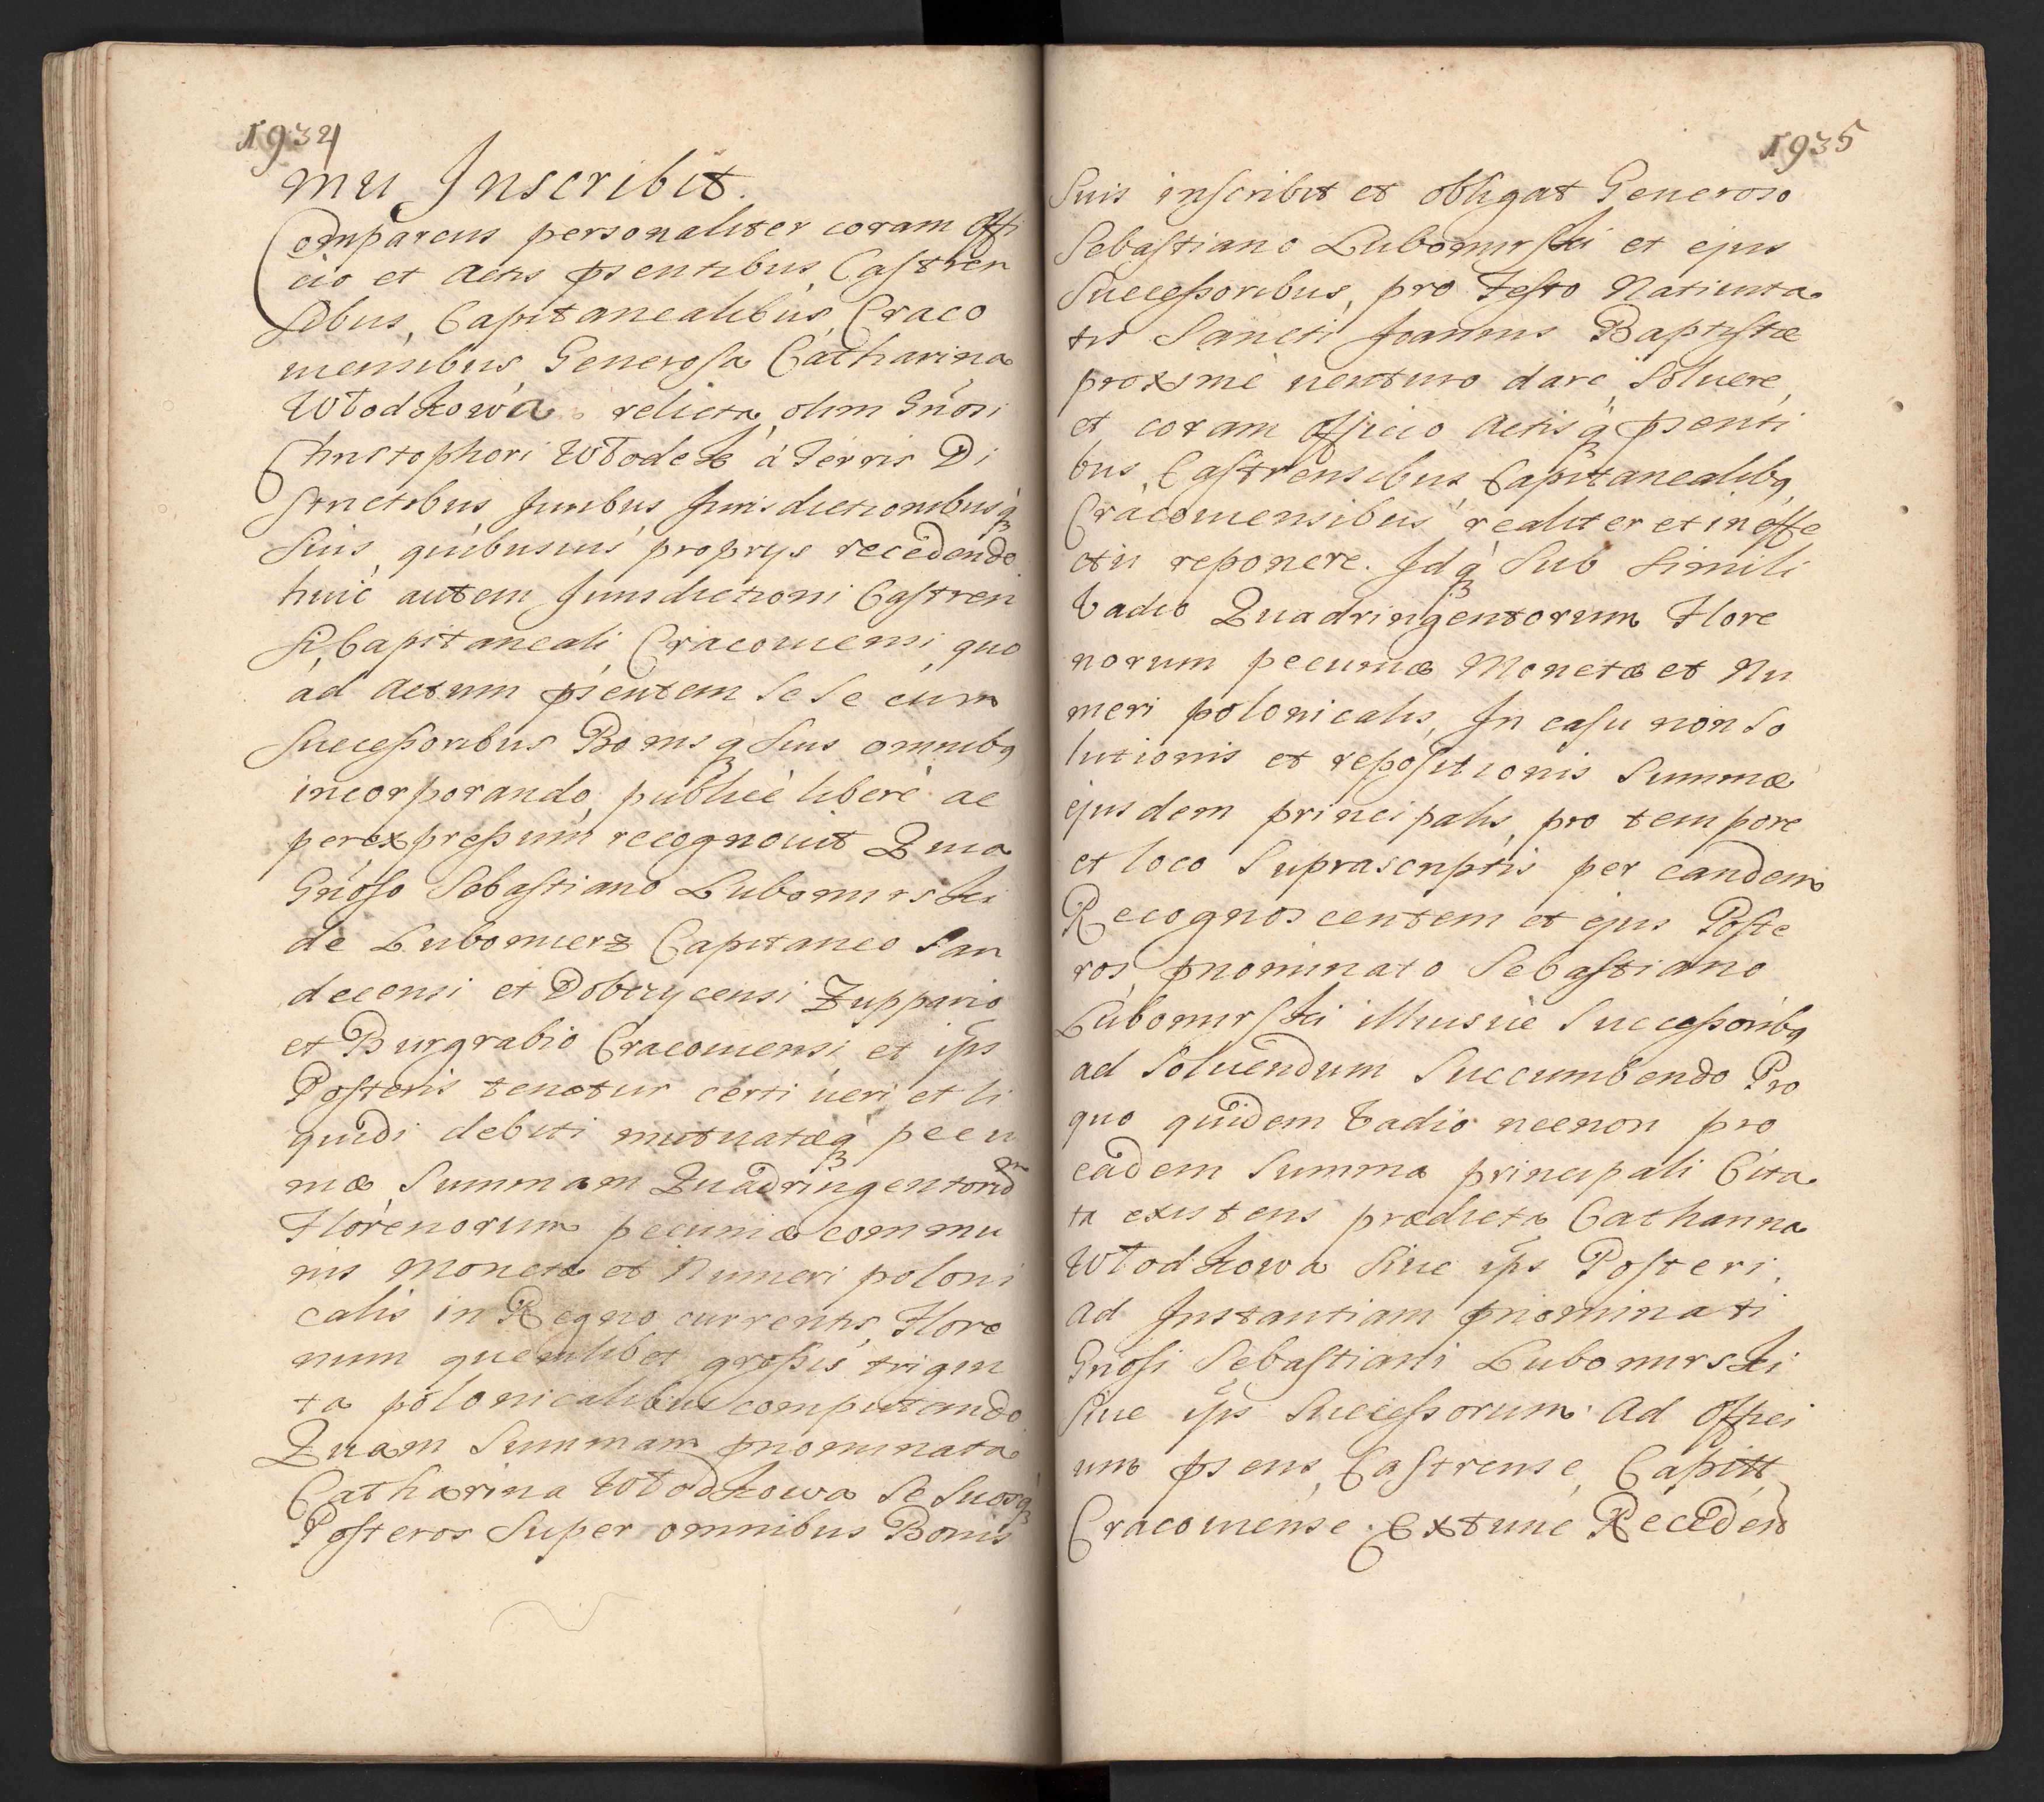 1934
mu Inscribit.
Comparens personaliter coram Offi
cio et Actis pñentibus, Castren
sibus, Capitanealibus, Craco
uiensibus Generosa Catharina
Włodkowa relicta olim Gñosi
Christophori Włodek à Terris Di
strictibus Juribus Jurisdictionibusq́ꝫ
suis quibusuis proprys recedendo
huic autem Jurisdictioni Castren
si, Capitaneali, Cracouiensi, quo
ad Actum pñentem Se Se cum
Successoribus Bonisq́ꝫ suis omnibꝫ
incorporando, publicè liberè ac
per expressum recognouit Quia
Gñoso Sebastiano Lubomirski
de Lubomierz Capitaneo San
decensi et Dobczycensi Zuppario
et Burgrabio Cracouiensi, et ip̃s
Posteris tenetur certi ueri et li
quidi debiti mutuatæq́ꝫ pecu
niæ Summam Quadringentorũm
Florenorum pecuniæ commu
nis Monetæ et Numeri poloni
calis in Regno currentis, Flore
num quemlibet grossis trigin
ta polonicalibus computando
Quam Summam pñominata
Catharina Włodkowa Se Suosq́ꝫ
Posteros Super omnibus Bonis
1935
Suis inscribit et obligat Generoso
Sebastiano Lubomirski et ejus
Successoribus, pro Festo Natiuita
tis Sancti Joannis Baptistæ
proximè uenturo dare, Soluere,
et coram Officio Actisq́ꝫ pñenti
bus, Castrensibus Capitanealibꝫ
Cracouiensibus realiter et in effe
ctu reponere. Idq́ꝫ Sub Simili
Vadio Quadringentorum Flore
norum pecuniæ Monetæ et Nu
meri polonicalis, In casu non So
lutionis et repositionis Summæ
ejusdem principalis, pro tempore
et loco Suprascriptis per eandem
Recognoscentem et ejus Poste
ros, pñominato Sebastiano
Lubomirski illiusuè Successoribꝫ
ad Soluendum Succumbendo Pro
quo quidem Vadio necnon pro
eadem Summa principali Cita
ta existens prædicta Catharina
Włodkowa Siue ip̃s Posteri,
ad Instantiam pñominati
Gñosi Sebastiani Lubomirski
Siue ip̃s Successorum Ad Offici
um pñens, Castrense, Capitt
Cracouiense. Extunc Receden